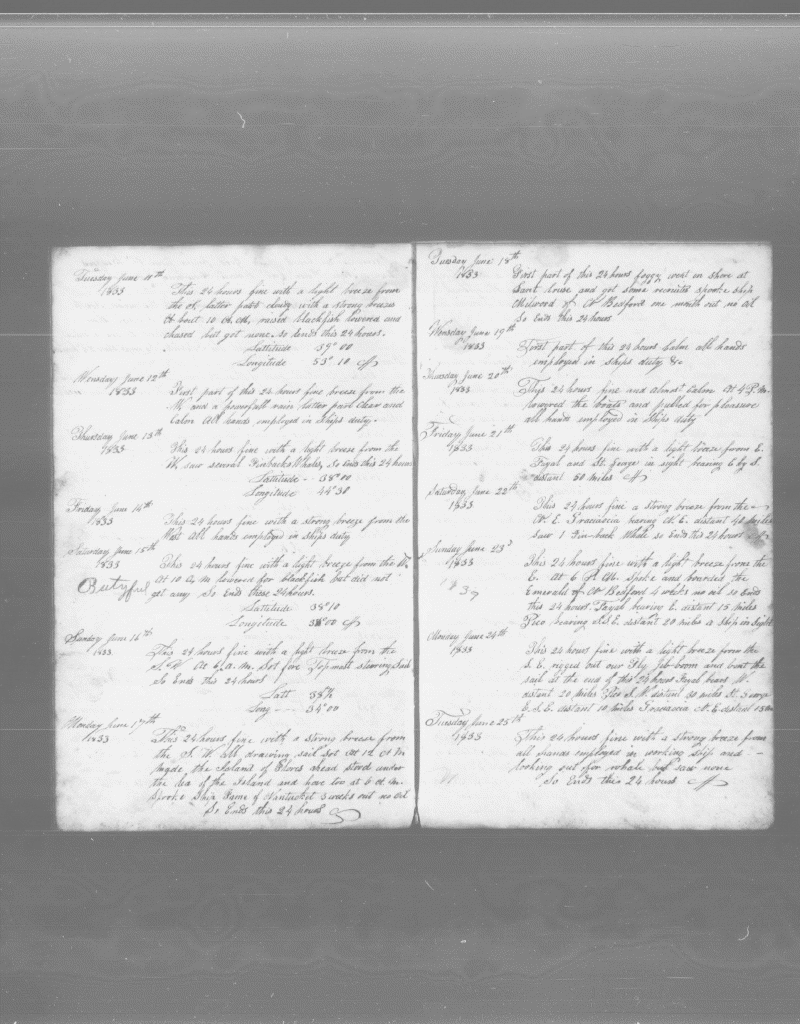 Tuesday June 11th
1833
This 24 hours fine with a light breeze from
the latter part cloudy with a strong breeze
At bout 10 A.M. raised blackfish lowered and
chased but got none. So Ends this 24 hours.
Lattitude 39° 00
Longitude 53° 10
Wensday June 12th
1833
First part of this 24 hours fine breeze from the
W and a powerfull rain latter part Clear and
Calm All hands employed in Ships duty.
Thursday June 13th
1833
This 24 hours fine with a light breeze from the
W. saw several Finbacks Whales, So Ends this 24 hours
Lattitude - 38° 00
Longitude 44° 30
Friday June 14th
1833
This 24 hours fine with a strong breeze from the
West All hands employed in ships duty
Saturday June 15th
1833
This 24 hours fine with a light breeze from the W.
At 10 A.M lowered for blackfish but did not
get any So Ends these 24 hours.
Butyful
Lattitude 38° 10
Longitude 38° 00
Sunday June 16th
1833
This 24 hours fine with a light breeze from the
S.W. At 6 A.m. Sot five Topmast stearing Sail
So Ends this 24 hours
Latt 38 3/4
Long --- 34° 00
Monday June 17th
1833
This 24 hours fine with a strong breeze from
the S.W all drawing sail sot At 12 A M
made the Island of Flores ahead stood under
the lea of the Island and hove too at 6 A.m.
Spoke Ship Fame of Nantucket 3 weeks out no Oil
So Ends this 24 hours
Tuesday June 18th
1833
First part of this 24 hours foggy went in shore at
Sant Cruse and got some recruits spoke Ship
Milwood of N Bedford one month out no oil
So Ends this 24 hours
Wensday June 19th
1833
First part of this 24 hours Calm all hands
employed in ships duty &c
Thursday June 20th
1833
This 24 hours fine and almost Calm At 4 P.M.
lowered the boats and pulled for pleasure
all hands employed in Ships duty
Friday June 21th
1833
This 24 hours fine with a light breeze from E.
Fayal and St. George in sight bearing E by S.
distant 50 miles
Saturday June 22th
1833
This 24 hours fine a strong breeze from the
N. E. Graciascia bearing N. E. distant 40 Miles
saw 1 Fin-back Whale so Ends this 24 hours
Sunday June 23d
1833
This 24 hours fine with a light breeze from the
E. At 6 P. M. Spoke and boarded the
Emerald of N Bedford 4 weeks no oil so Ends
this 24 hours Fayal bearing E. distant 15 miles
Pico bearing S.S.E. distant 20 miles a Ship in Sight
Monday June 24th
1833
This 24 hours fine with a light breeze from the
S. E. rigged out our Fly Jib-boom and bent the
sail at the end of this 24 hours Fayal bears W.
distant 20 miles Pico S.W. distant 30 miles St. George
E.S.E. distant 10 miles Graciascia N. E. distant 15 M
Tuesday June 25th
1833
This 24 hours fine with a strong breeze from
all hands employed in working Ship and -
looking out for whale but saw none
So Ends this 24 hours